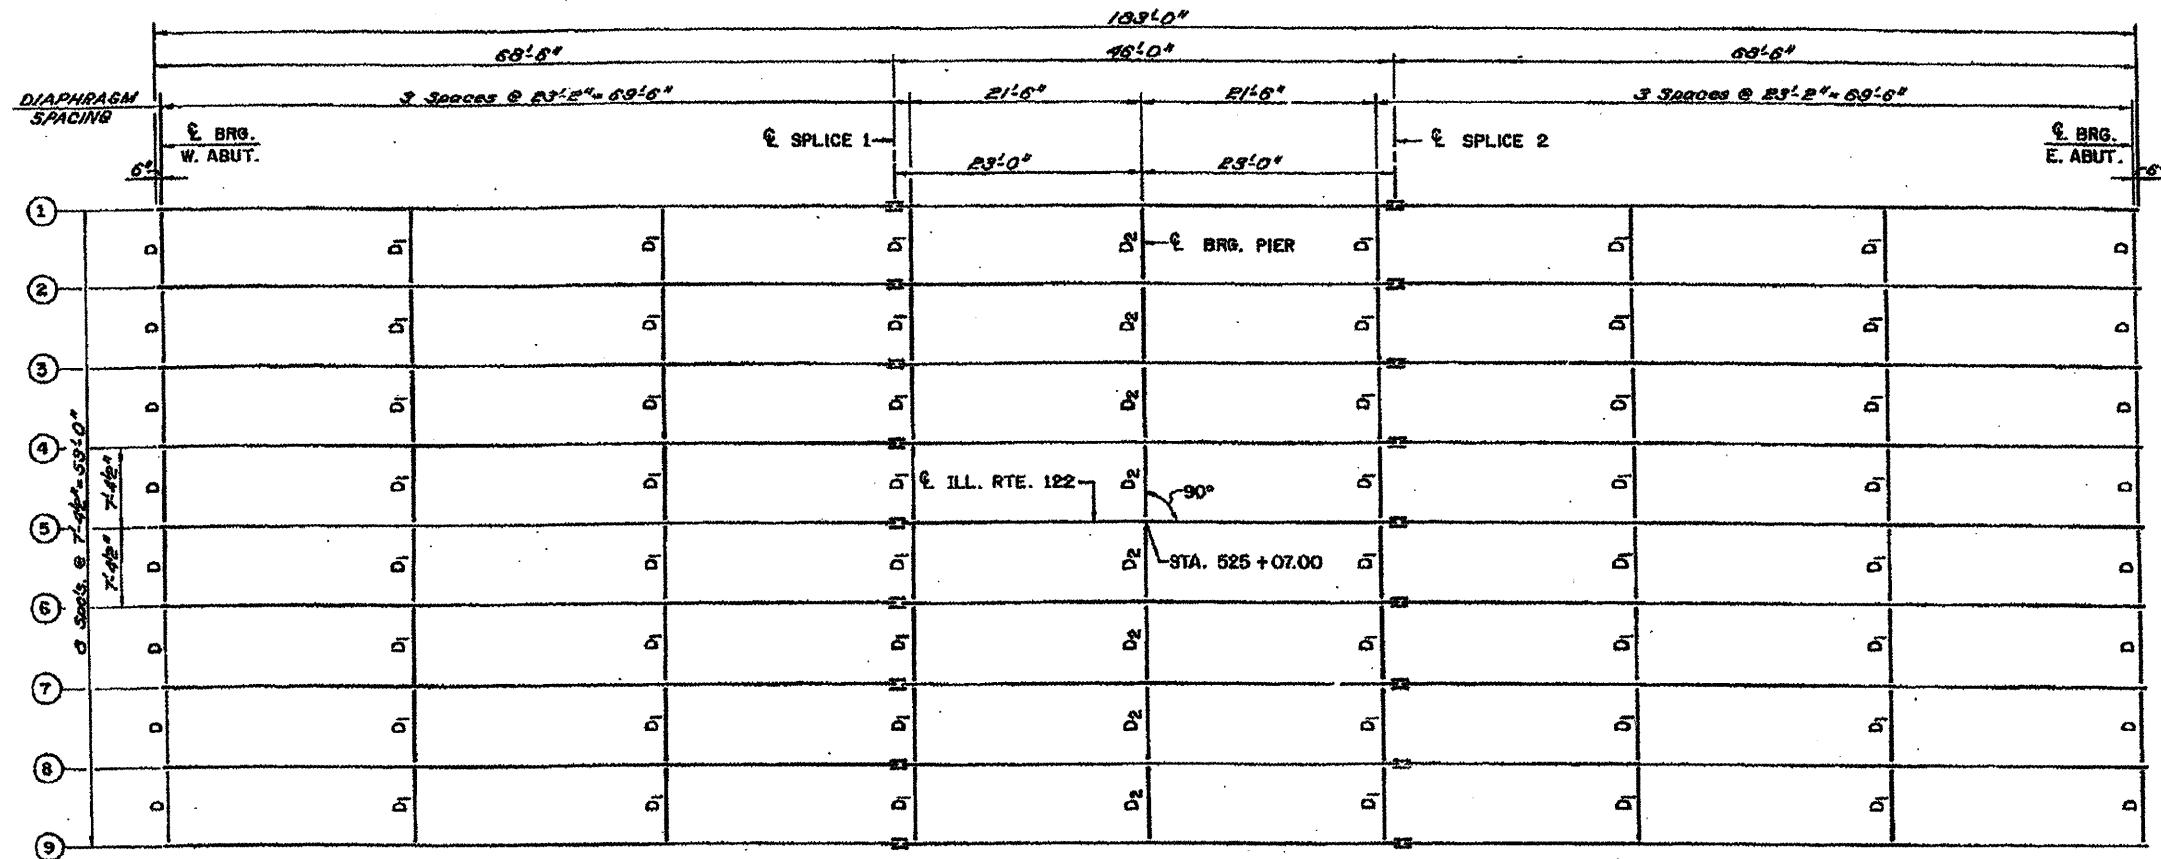 183'-0"
68'-6" 46'-0" 68'-6"
DIAPHRAGM
SPACING
3 Spaces @ 23'-2" = 69'-6" 21'-6" 21'-6" 3 Spaces @ 23'-2" = 69'-6"
℄ BRG.
W. ABUT.
℄ SPLICE 1
℄ SPLICE 2
℄ BRG.
E. ABUT.
6" 23'-0" 23'-0" 6"
1
D D1 D1 D1 D2 ℄ BRG. PIER D1 D1 D1 D
2
D D1 D1 D1 D2 D1 D1 D1 D
3
D D1 D1 D1 D2 D1 D1 D1 D
4
D D1 D1 D1 ℄ ILL. RTE. 122 D2 90° D1 D1 D1 D
5
D D1 D1 D1 D2 STA. 525 +07.00 D1 D1 D1 D
6
D D1 D1 D1 D2 D1 D1 D1 D
7
D D1 D1 D1 D2 D1 D1 D1 D
8
D D1 D1 D1 D2 D1 D1 D1 D
9
8 Spcs. @ 7'-4½" = 59'-0"
7'-4½" 7'-4½"